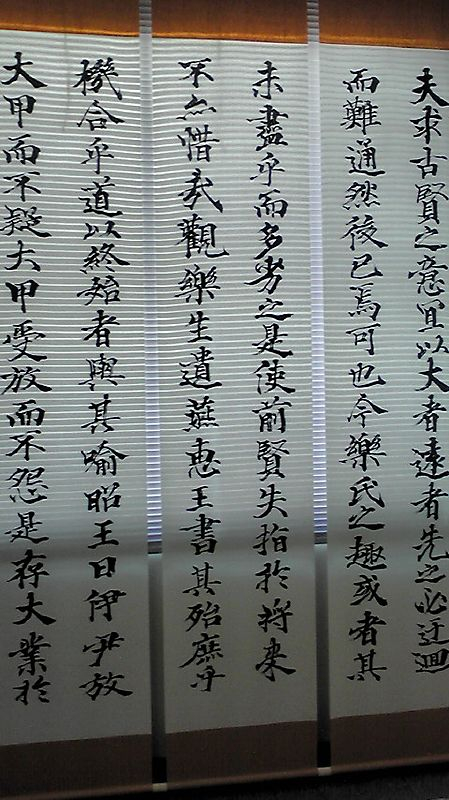 夫求古賢之意宜以大者遠者先之必迂迴
而難通然後已焉可也今樂氏之趣或者其
未盡乎而多劣之是使前賢失指於将来
不亦惜哉觀樂生遺燕惠王書其殆庶乎
機合乎道以終始者與其喻昭王曰伊尹放
大甲而不疑大甲受放而不怨是存大業於